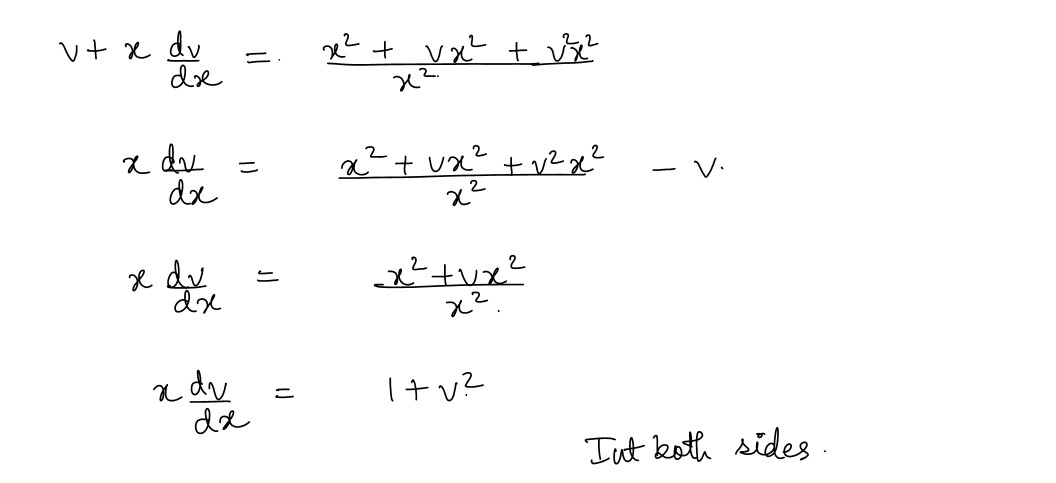 v + x dv/dx = (x² + vx² + v²x²)/x²
x dv/dx = (x² + vx² + v²x²)/x² - v.
x dv/dx = (x² + vx²)/x².
x dv/dx = 1 + v²
Int both sides.